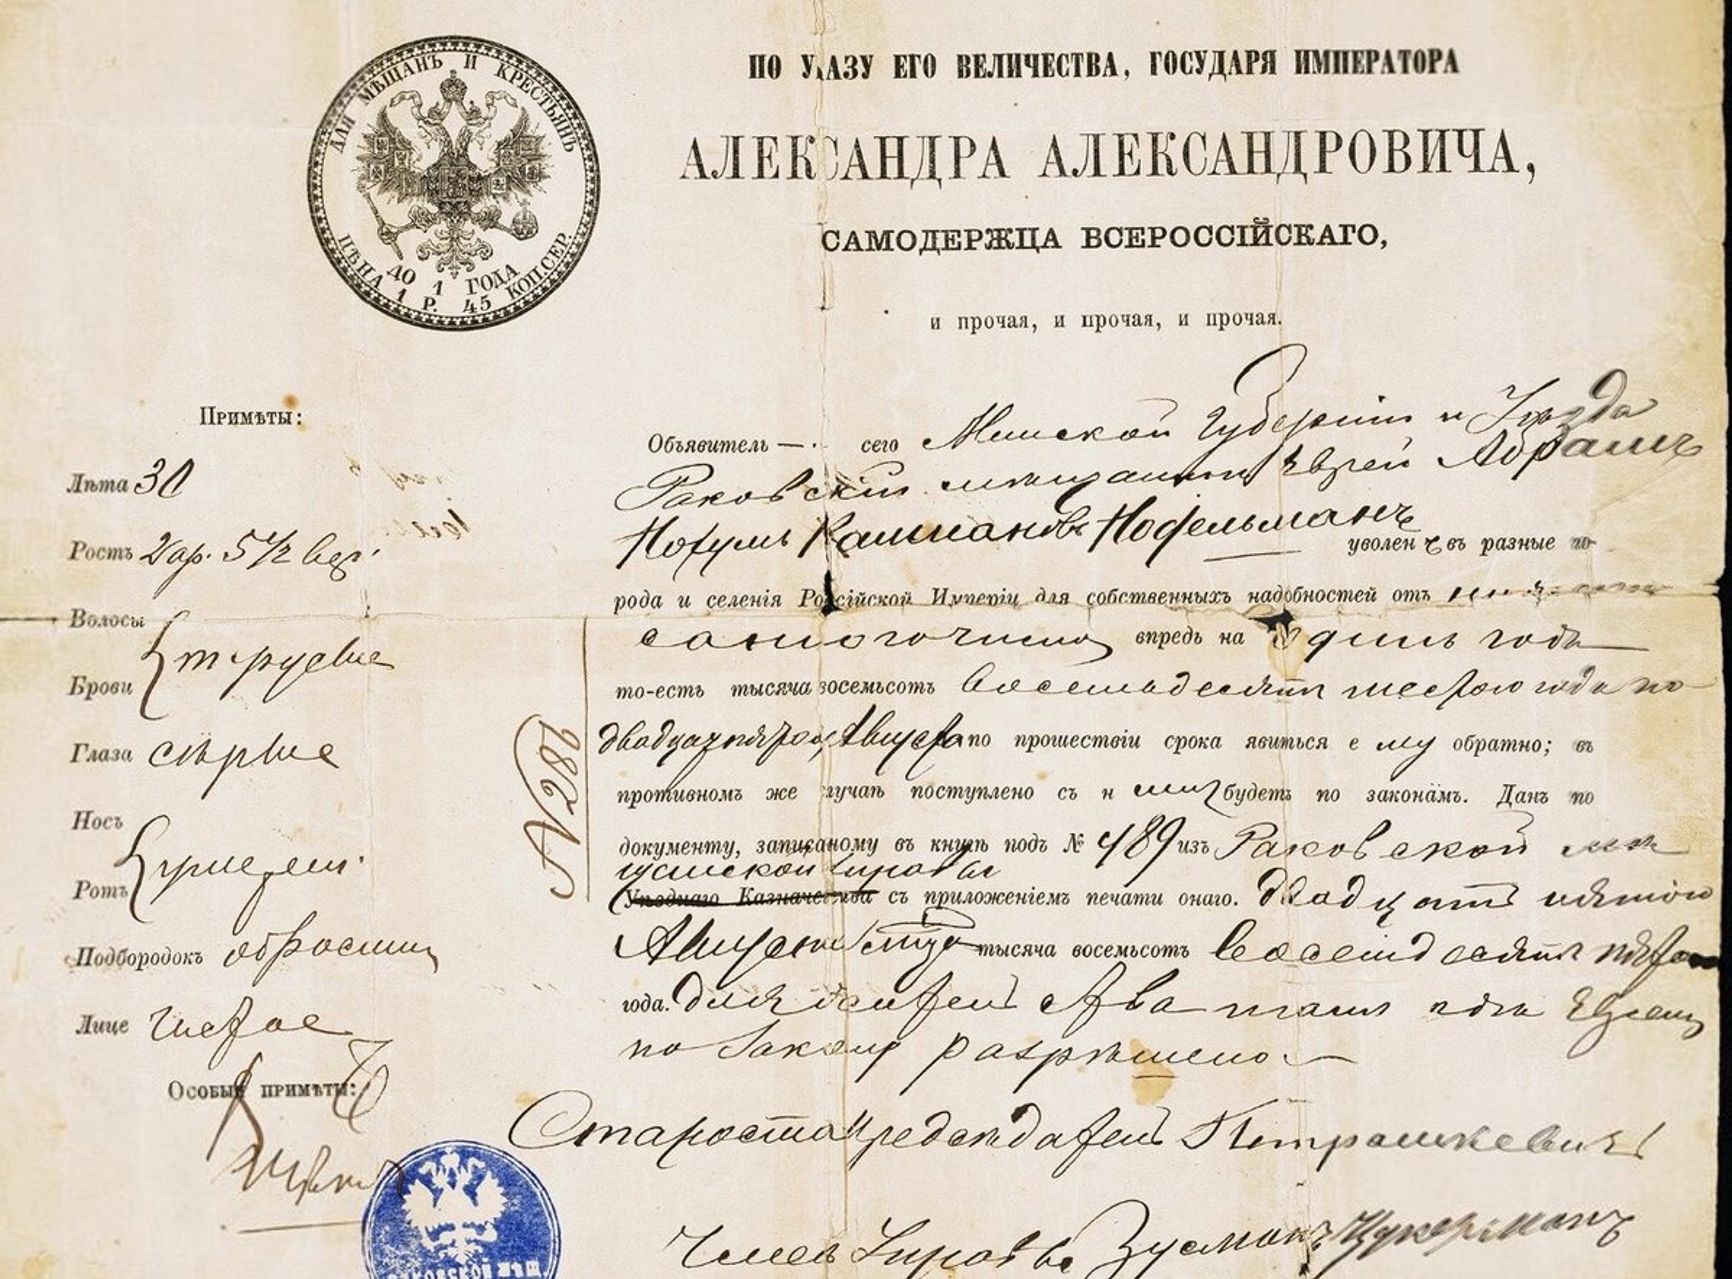 ДЛЯ МѢЩАНЪ И КРЕСТЬЯНЪ
ДО 1 ГОДА
ЦѢНА 1 Р. 45 КОП. СЕР.
ПО УКАЗУ ЕГО ВЕЛИЧЕСТВА, ГОСУДАРЯ ИМПЕРАТОРА
АЛЕКСАНДРА АЛЕКСАНДРОВИЧА,
САМОДЕРЖЦА ВСЕРОССІЙСКАГО,
и прочая, и прочая, и прочая.
Примѣты:
Лѣта 30
Ростъ 2 ар. 5 1/2 вер.
Волосы
Брови русые
Глаза сѣрые
Носъ
Ротъ умѣрен.
Подбородокъ обросшій
Лице чистое
Особыя примѣты:
№ 286
Объявитель — сего Минской Губерніи и Уѣзда
Раковскій мѣщанинъ Еврей Абрамъ
Нохумъ Нофельманъ уволенъ въ разные го-
рода и селенія Россійской Имперіи для собственныхъ надобностей отъ нижеписаннаго
числа впредь на одинъ годъ
то-есть тысяча восемьсотъ восемьдесятъ шестого года по
двадцать пятое Августа по прошествіи срока явиться ему обратно; въ
противномъ же случаѣ поступлено съ нимъ будетъ по законамъ. Данъ по
документу, записаному въ книгѣ подъ № 489 изъ Раковской мѣ
щанской Управы
Уѣзднаго Казначейства съ приложеніемъ печати онаго. Двадцать пятого
Августа тысяча восемьсотъ восемьдесятъ пятого
года. для евреямъ
по закону разрѣшено
Староста Предсѣдатель Петрашкевичъ
Членъ Управы Зусманъ Цукерманъ